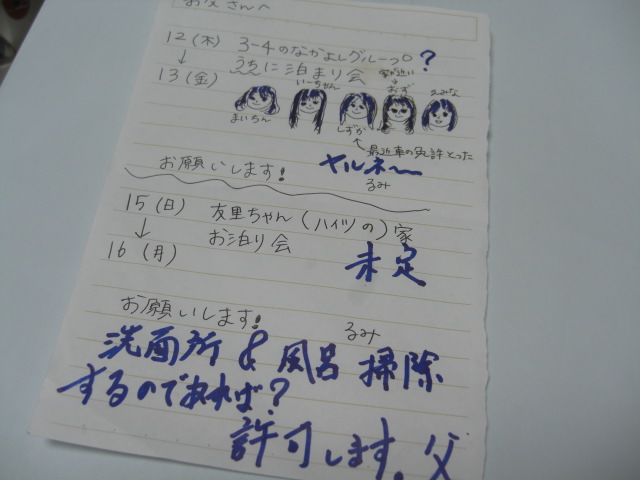 お父さんへ
12(木) 3-4のなかよしグループ?
↓ うちに泊まり会
13(金)
家が近い
いーちゃん
まいちん しずか
↑最近車の免許とった
お願いします! ヤルネ〜
るみ
15(日) 友里ちゃん(ハイツの)家
↓ お泊り会
16(月) 未定
お願いします!
るみ
洗面所&風呂掃除
するのであれば?
許可します。父